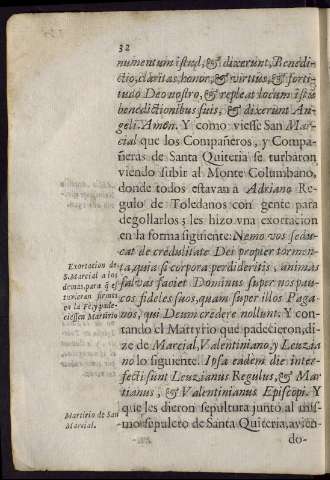 32
numentum istud, & dixerunt, Benedi-
ctio, claritas, honor, & virtus, & forti-
tudo Deo nostro, & repleat locum istū
benedictionibus suis, & dixerunt An-
geli. Amen. Y como viesse San Mar-
cial que los Compañeros, y Compa-
ñeras de Santa Quiteria se turbaron
viendo subir al Monte Columbano,
donde todos estavan à Adriano Re-
gulo de Toledanos con gente para
degollarlos; les hizo vna exortacion
en la forma siguiente: Nemo vos sedu-
cat de credulitate Dei propter tormen-
ta, quia si corpora perdideritis, animas
salvas faciet Dominus super nos pau-
cos fideles suos, quam super illos Paga-
nos, qui Deum credere nollunt. Y con-
tando el Martyrio que padecieron, di-
ze de Marcial, Valentiniano, y Leuzia
no lo siguiente. Ipsa eadem die inter-
fecti sunt Leuzianus Regulus, & Mar
tianus, & Valentinianus Episcopi. Y
que les dieron sepultura junto al mis-
mo sepulcro de Santa Quiteria, avien-
do-
Exortacion de
S. Marcial a los
demas, para q̃ es
tuvieran firmes
en la Fè, y pade-
ciessen Martirio
Martirio de San
Marcial.